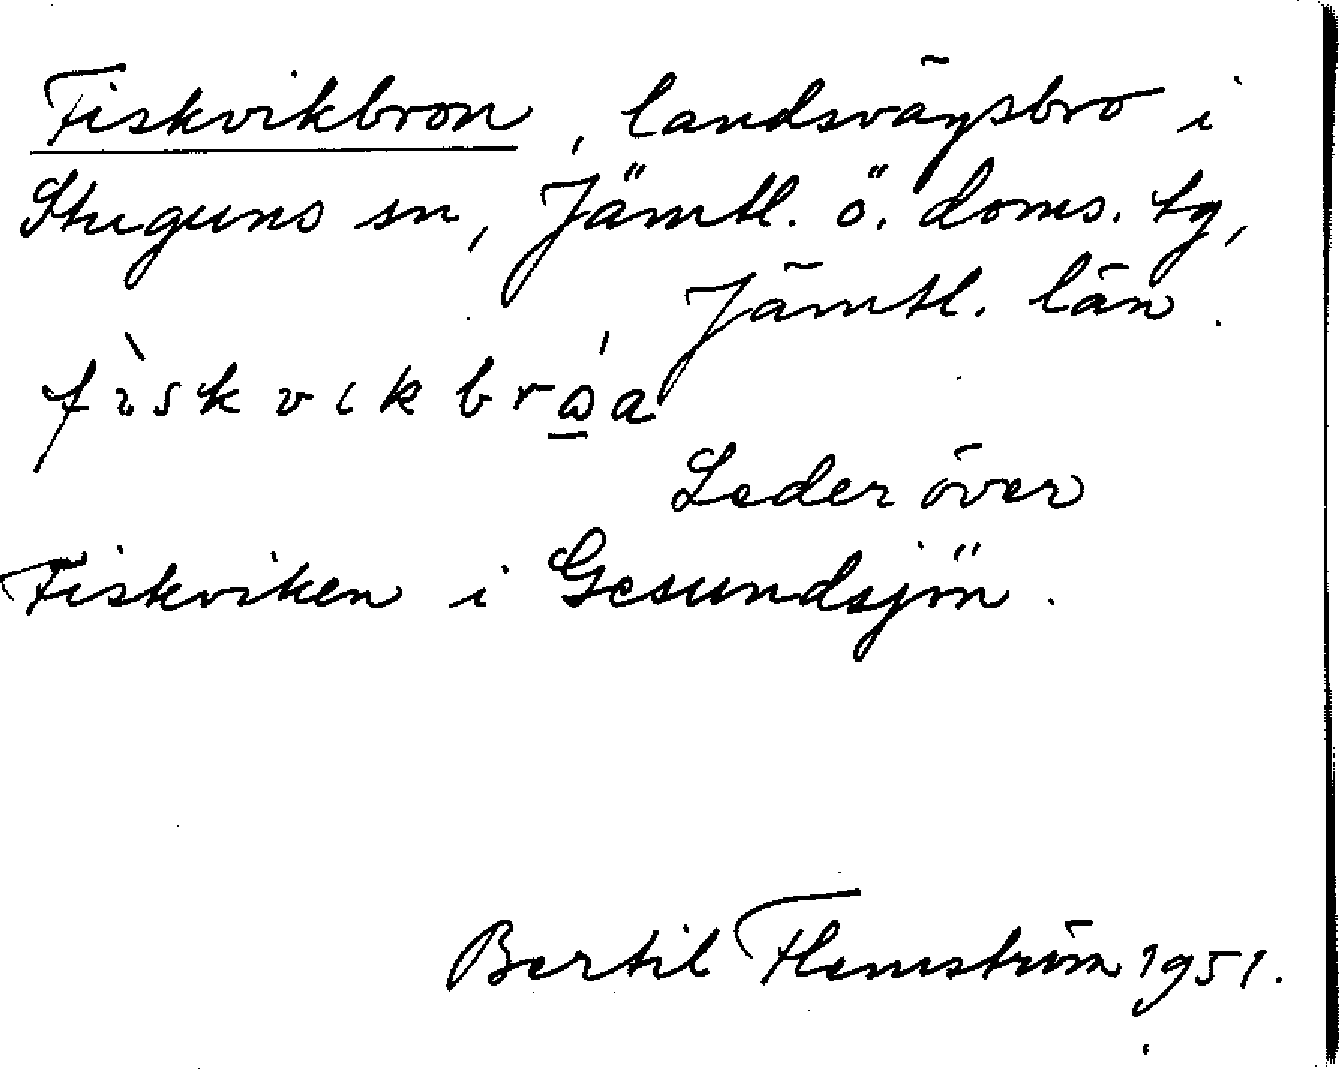 Fiskvikbron, landsvägsbro i
Stuguns sn, Jämtl. ö. doms. tg,
Jämtl. län.
fìskvikbrώ̲a
Leder över
Fiskviken i Gesundsjön.
Bertil Flemström 1951.